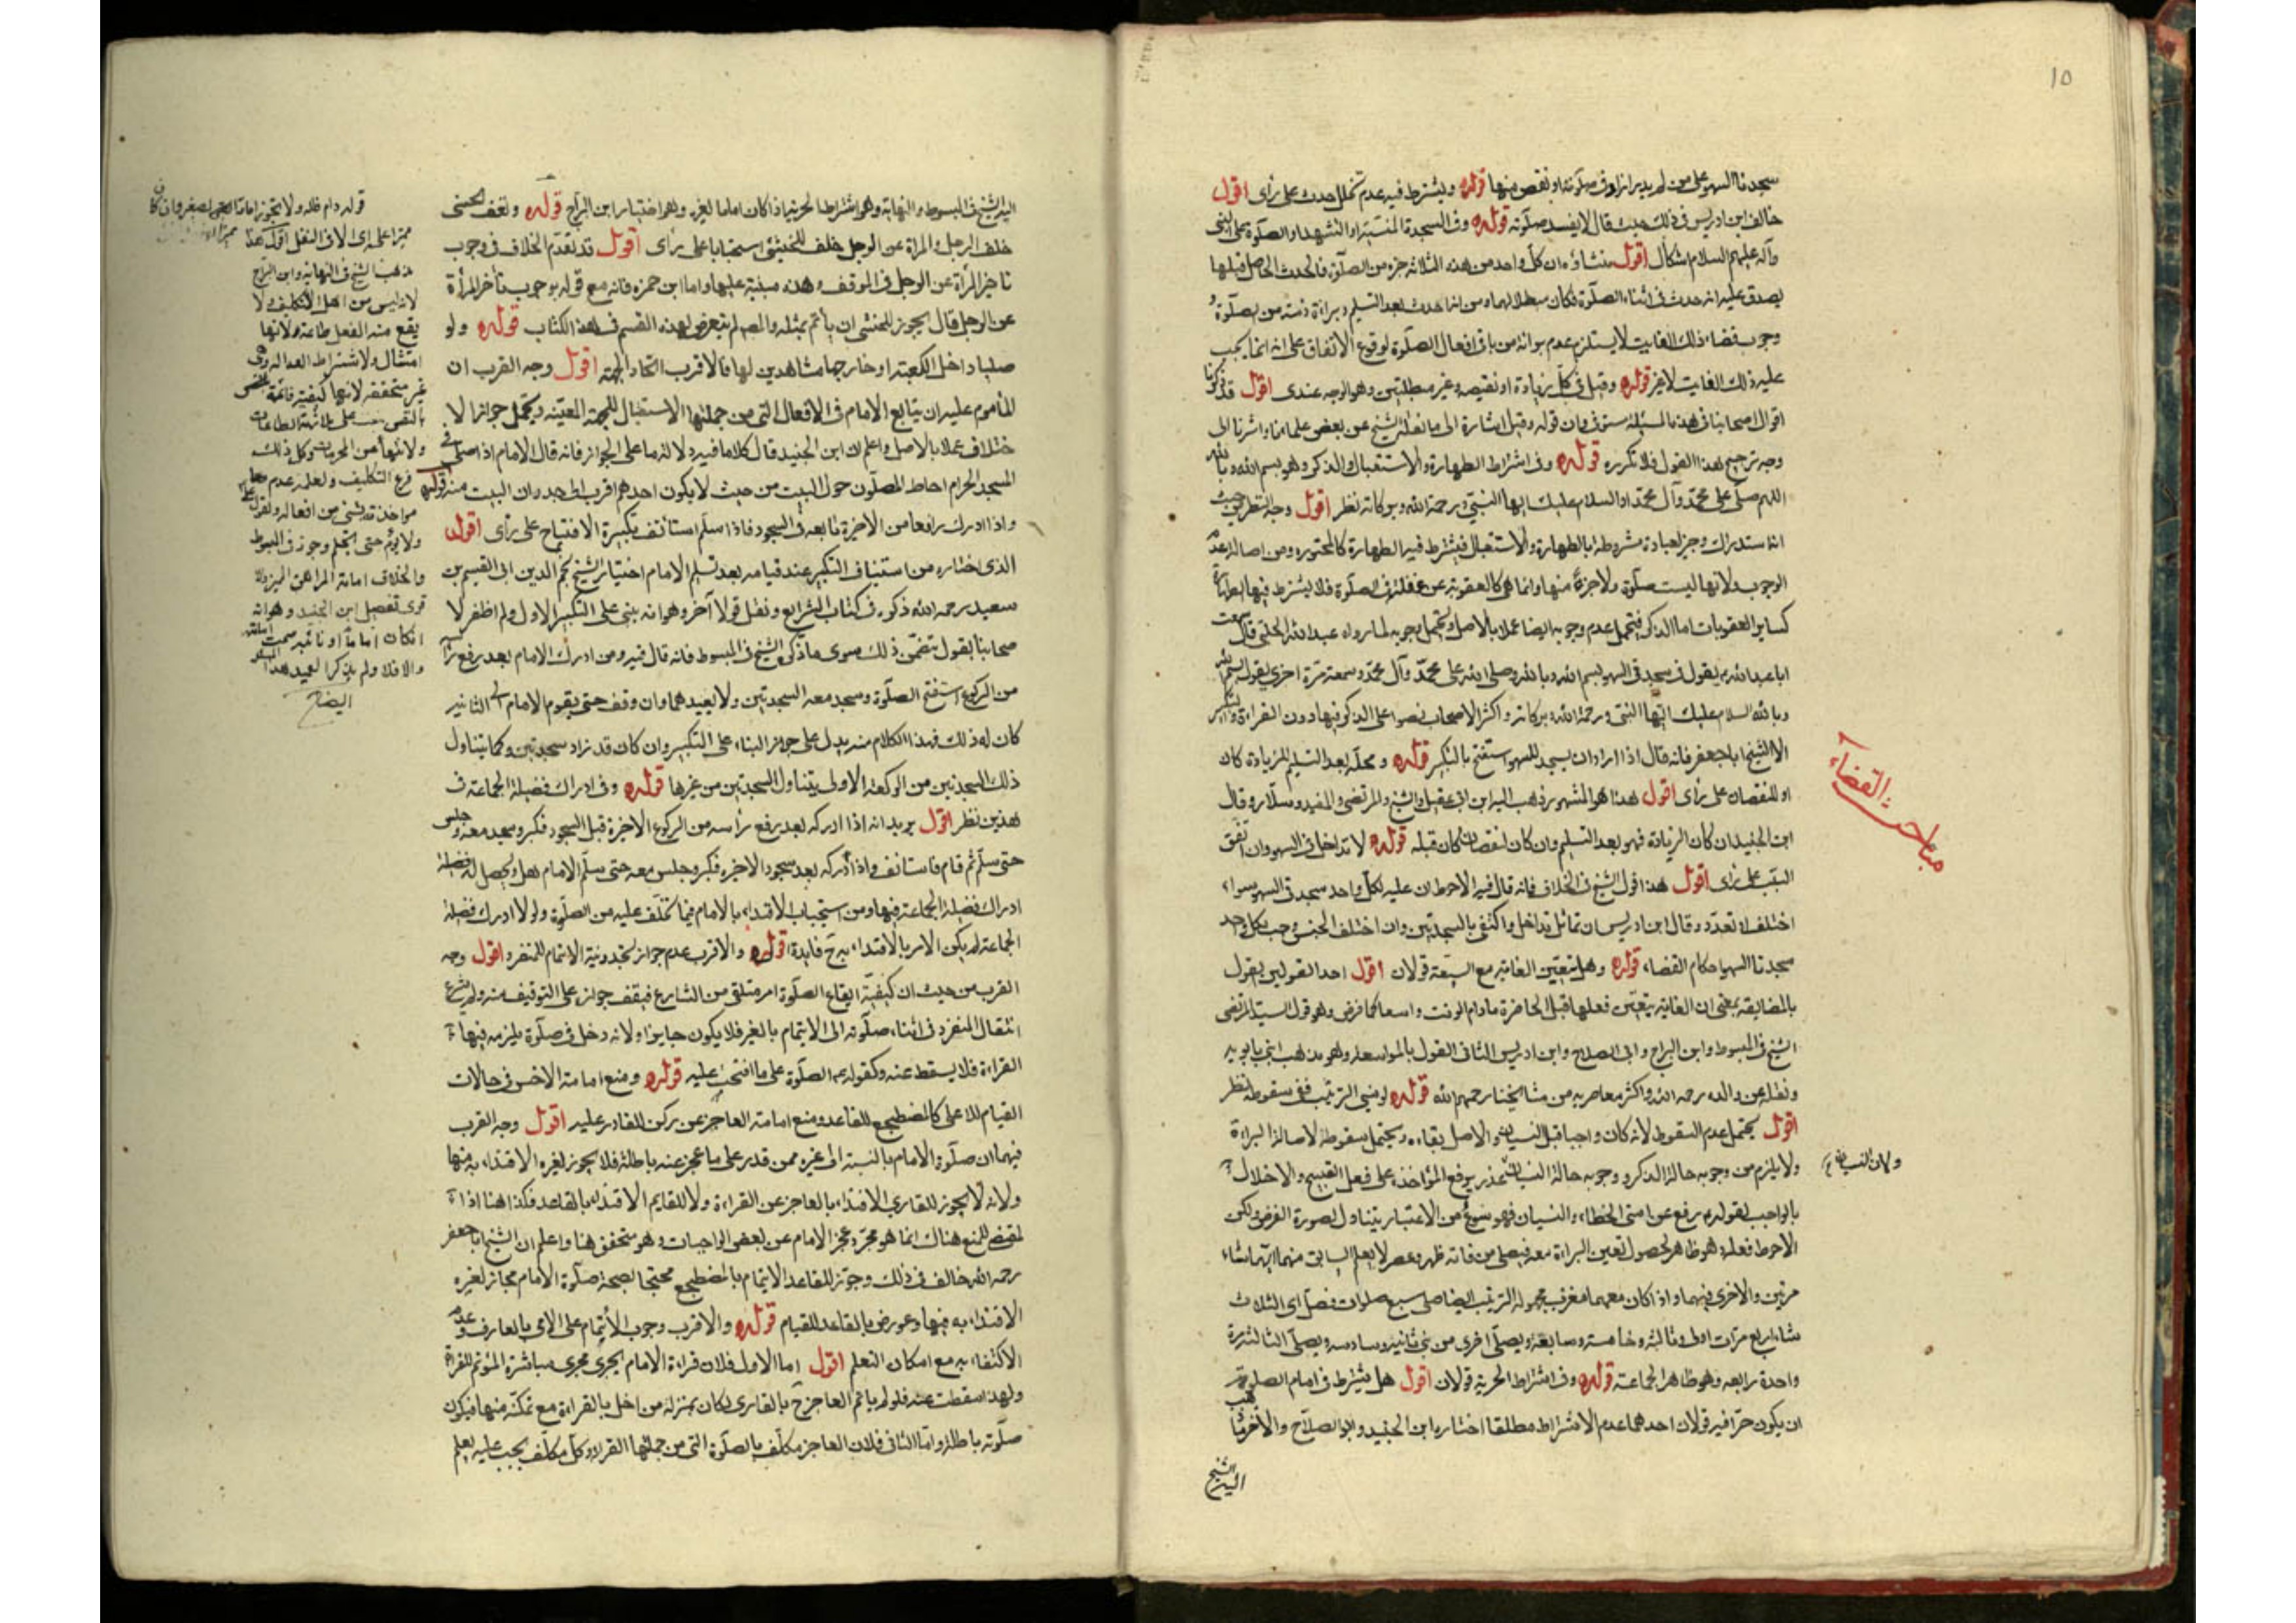 ١٥
سجدتا السهو على من لم يدر ازاد في صلوته او نقص منها قوله ويشترط فيه عدم تخلل حدث على رأى اقول
خالف ابن ادريس في ذلك حيث قال لا يفسد صلوته قوله وفى السجدة المنسية او التشهد او الصلوة على النبى
وآله عليهم السلام اشكال اقول منشاؤه ان كل واحد من هذه الثلاثة جزء من الصلوة فالحدث الحاصل قبلها
يصدق عليه انه حدث فى اثناء الصلوة فكان مبطلا لها ومن انه احدث بعد التسليم وبراءة ذمته من الصلوة و
وجوب قضاء ذلك الغايب لا يستلزم عدم براءته من باقى افعال الصلوة لوقوع الاتفاق على انه انما يجب
عليه ذلك الغايت لا غير قوله وقيل فى كل زيادة او نقيصة غير مبطلتين وهو الوجه عندى اقول قد ذكرنا
اقوال اصحابنا فى هذه المسئلة مستوفى وان قوله وقيل اشارة الى ما نقله الشيخ عن بعض علمائنا واشرنا الى
وجه ترجيح هذا القول فلا نكرره قوله وفى اشتراط الطهارة والاستقبال والذكر وهو بسم الله وبالله
اللهم صلى على محمد وآل محمد او السلام عليك ايها النبى ورحمة الله وبركاته نظر اقول وجه النظر من حيث
انه استدراك وجزء لعبادة مشروطة بالطهارة والاستقبال فيشترط فيه الطهارة كالمجبورة ومن اصالة عدم
الوجوب ولانها ليست صلوة ولا جزءا منها وانما هى كالعقوبة عن غفلته فى الصلوة فلا يشترط فيها الطهارة
كساير العقوبات اما الذكر فيحتمل عدم وجوبه ايضا عملا بالاصل ويحتمل وجوبه لما رواه عبد الله الحلبى قال سمعت
ابا عبد الله ع يقول فى سجدتى السهو بسم الله وبالله وصلى الله على محمد وآل محمد وسمعته مرة اخرى يقول بسم الله
وبالله السلام عليك ايها النبى ورحمة الله وبركاته واكثر الاصحاب نصوا على الذكر فيها دون القراءة والتكبير
الا الشيخ ابا جعفر فانه قال اذا اراد ان يسجد للسهو استفتح بالتكبير قوله ومحله بعد التسليم للزيادة كان
او للنقصان على رأى اقول هذا هو المشهور ذهب اليه ابن ابى عقيل والشيخ والمرتضى والمفيد وسلار وقال
ابن الجنيد ان كان الزيادة فهو بعد التسليم وان كان لنقصان كان قبله قوله لا تداخل فى السهو وان اتفق
السبب على رأى اقول هذا قول الشيخ فى الخلاف فانه قال فيه الاحوط ان عليه لكل واحد سجدتى السهو سواء
اختلف او تعدد وقال ابن ادريس ان تماثل تداخل واكتفى بالسجدتين وان اختلف الجنس وجب بكل واحد
سجدتا السهو احكام القضاء قوله وهل تتعين الفائتة مع السعة قولان اقول احد القولين يقول
بالمضايقة بمعنى ان الفائتة يتعين فعلها قبل الحاضرة ما دام الوقت واسعا كما فرض وهو قول السيد المرتضى
الشيخ فى المبسوط وابن البراج وابى الصلاح وابن ادريس الثانى القول بالمواسعة وهو مذهب ابنى بابويه
ونقله عن والده رحمه الله واكثر معاصريه من مشايخنا رحمهم الله قوله لو نسى الترتيب ففى سقوطه نظر
اقول يحتمل عدم السقوط لانه كان واجبا قبل النسيان والاصل بقاءه ويحتمل سقوطه لاصالة البراءة
ولا يلزم من وجوبه حالة الذكر وجوبه حالة النسيان عذر يرفع المؤاخذة على فعل القبيح والاخلال
بالواجب لقوله ع رفع عن امتى الخطاء والنسيان فهو نوع من الاعتبار يتناول لصورة الفرض ولكن
الاحوط فعله وهو ظاهر لحصول تعين البراءة معه فيصلى من فاته ظهر وعصر لا يعلم السابق منهما ايهما شاء
مرتين والاخرى بينهما واذا كان معهما مغرب مجهولة الترتيب ايضا صلى سبع صلوات فصلى اى الثلاث
شاء اربع مرات اولى وثالثة وخامسة وسابعة ويصلى اخرى مرتين ثانية وسادسة ويصلى الثالثة مرة
واحدة رابعة وهو ظاهر الجماعة قوله وفى اشتراط الحرية قولان اقول هل يشترط فى امام الصلوة
ان يكون حرا فيه قولان احدهما عدم الاشتراط مطلقا اختاره ابن الجنيد وابو الصلاح والاخر ذهب
اليه الشيخ
مباحث القضاء
ولان النسيان
اليه الشيخ فى المبسوط والنهاية وهو اشتراط الحرية اذا كان اماما لغيره وهو اختيار ابن البراج قوله ولتقف الخنثى
خلف الرجل والمراة عن الرجل خلف الخنثى استحبابا على رأى اقول قد تقدم الخلاف فى وجوب
تاخير المرأة عن الرجل فى الموقف وهذه مبنية عليها واما ابن حمزة فانه مع قوله بوجوب تأخر المرأة
عن الرجل قال يجوز للخنثى ان يأتم بمثله والمص لم يتعرض لهذه القسم فى هذا الكتاب قوله ولو
صليا داخل الكعبة او خارجها مشاهدين لها فالاقرب اتحاد الجهة اقول وجه القرب ان
المأموم عليه ان يتابع الامام فى الافعال التى من جملتها الاستقبال للجهة المعينة ويحتمل جواز الا
ختلاف عملا بالاصل واعلم ان ابن الجنيد قال كلاما فيه دلالة ما على الجواز فانه قال الامام اذا صلى فى
المسجد الحرام احاط المصلون حول البيت من حيث لا يكون احدهم اقرب الى جدران البيت منه قوله
واذا ادرك رافعا من الاخيرة تابعه فى السجود فاذا سلم استأنف بتكبيرة الافتتاح على رأى اقول
الذى اختاره من استيناف التكبير عند قيامه بعد تسليم الامام اختيار الشيخ نجم الدين ابى القسم بن
سعيد رحمه الله ذكره فى كتاب الشرايع ونقل قولا آخر وهو انه يبنى على التكبير الاول ولم اظفر لا
صحابنا بقول يتضمن ذلك سوى ما ذكره الشيخ فى المبسوط فانه قال فيه ومن ادرك الامام بعد رفع رأسه
من الركوع استفتح الصلوة وسجد معه السجدتين ولا يعيدهما وان وقف حتى يقوم الامام الى الثانية
كان له ذلك فهذا الكلام منه يدل على جواز البناء على التكبير وان كان قد زاد سجدتين وكما يتناول
ذلك السجدتين من الركعة الاولى يتناول السجدتين من غيرها قوله وفى ادراك فضيلة الجماعة فى
هذين نظر اقول يريد انه اذا ادركه بعد رفع رأسه من الركوع الاخيرة قبل السجود فكبر وسجد معه وجلس
حتى سلم ثم قام فاستانف واذا أدركه بعد سجود الاخيرة فكبر وجلس معه حتى سلم الامام هل يحصل له فضيلة
ادراك فضيلة الجماعة فيها ومن استحباب الاقتداء بالامام فيما تخلف عليه من الصلوة ولولا ادراك فضيلة
الجماعة لم يكن الامر بالاقتداء به ح فايدة قوله والاقرب عدم جواز تجديد نية الائتمام للمنفرد اقول وجه
القرب من حيث ان كيفية ايقاع الصلوة امر متلقى من الشارع فيقف جوازه على التوقيف منه ولم يشرع
انتقال المنفرد فى اثناء صلوته الى الايتمام بالغير فلا يكون جايزا ولانه دخل فى صلوة يلزمه فيها
القراءة فلا يسقط عنه وكقوله ع الصلوة على ما افتتحت عليه قوله ومنع امامة الاخس فى حالات
القيام للاعلى كالمضطجع للقاعد ومنع امامة العاجز عن ركن للقادر عليه اقول وجه القرب
فيهما ان صلوة الامام بالنسبة الى غيره ممن قدر على ما عجز عنه باطلة فلا يجوز لغيره الاقتداء به فيها
ولانه لا يجوز للقارى الاقتداء بالعاجز عن القراءة ولا للقايم الاقتداء بالقاعد فكذا هنا اذا
لمقتضى للمنع هناك انما هو مجرد عجز الامام عن بعض الواجبات وهو متحقق هنا واعلم ان الشيخ ابا جعفر
رحمه الله خالف فى ذلك وجوز للقاعد الايتمام بالمضطجع محتجا بصحة صلوة الامام فجاز لغيره
الاقتداء به فيها وعورض بالقاعد للقيام قوله والاقرب وجوب الأيتمام على الامى بالعارف وعدم
الاكتفاء به مع امكان التعلم اقول اما الاول فلان قراءة الامام يجرى مجرى مباشرة المؤتم للقراءة
ولهذا سقطت عنه فلو لم يأتم العاجز ح بالقارى لكان بمنزلة من اخل بالقراءة مع تمكنه منها فيكون
صلوته باطلة واما الثانى فلان العاجز مكلف بالصلوة التى من جملتها القراءة وكل مكلف يجب عليه تعلم
قوله دام ظله ولا يجوز امامة الصغير وان كان
مميزا على رأى الا فى النفل اقول هذا
مذهب الشيخ فى النهاية وابن البراج
لانه ليس من اهل التكليف ولا
يقع منه الفعل طاعة ولانها
امتثال ولاشتراط العدالة وهى
غير متحققة لانها كيفية قائمة بالنفس
ولانتهاء من المحرمات وكل ذلك
فرع التكليف ولعلمه عدم
مواخذته بشئ من افعاله ولقول
ولا يؤم حتى يحتلم وجوز فى المبسوط
والخلاف امامة المراهق المميز
قوى تفصيل ابن الجنيد وهو انه
ان كان اماما او نائبه صحت امامته
والا فلا ولم يذكر العميد هذا
ايضاح